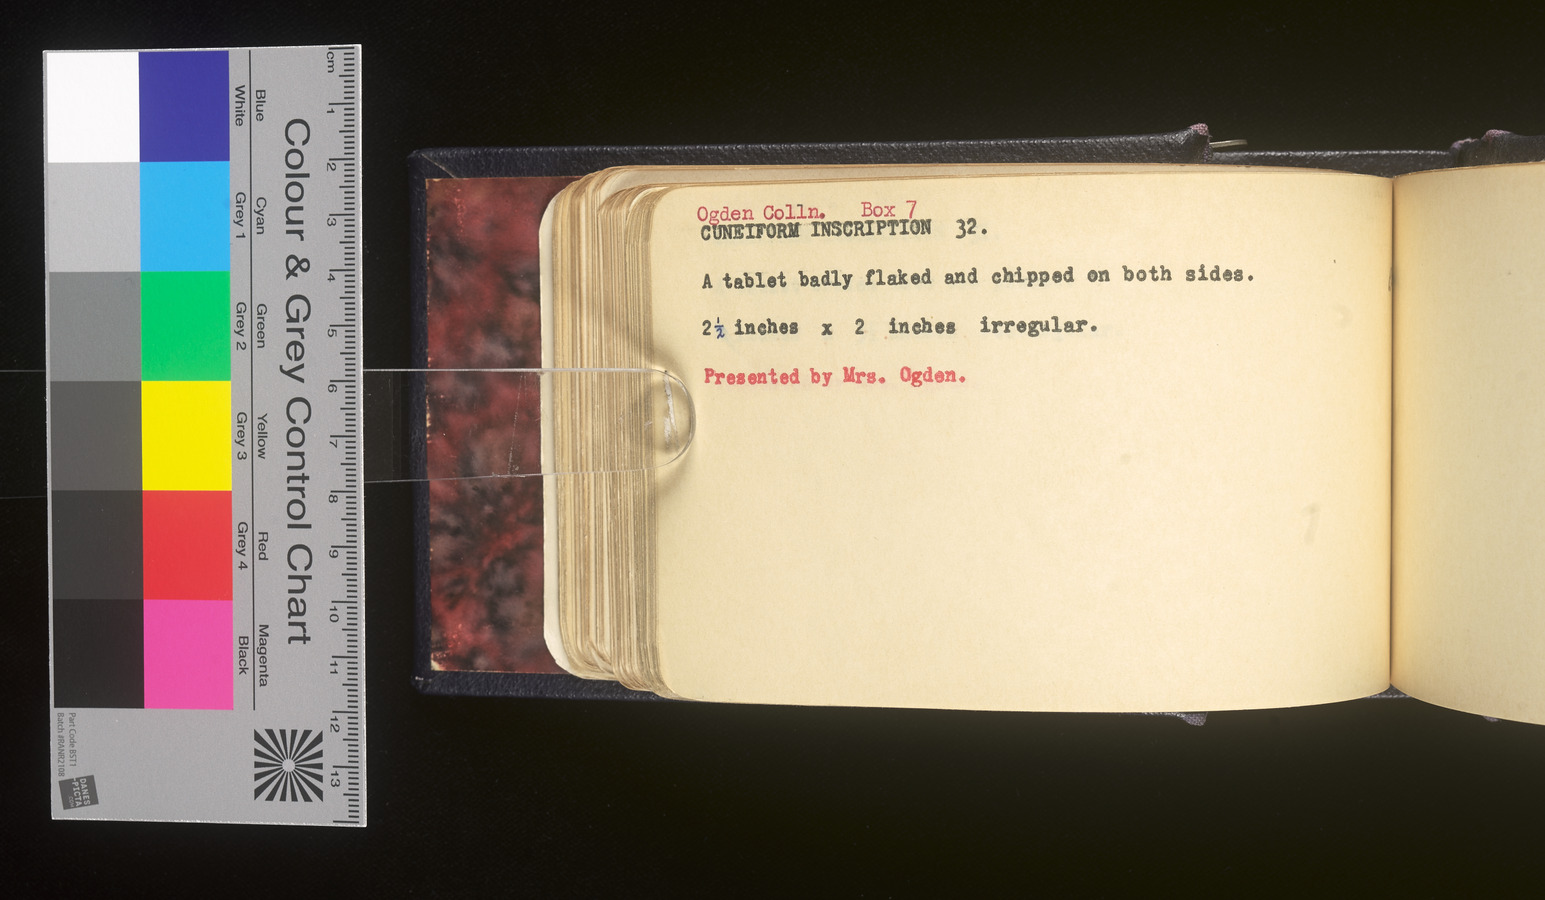 Ogden Colln. Box 7
CUNEIFORM INSCRIPTION 32.
A tablet badly flaked and chipped on both sides.
2½ inches x 2 inches irregular.
Presented by Mrs. Ogden.
Colour & Grey Control Chart
Blue Cyan Green Yellow Red Magenta
White Grey 1 Grey 2 Grey 3 Grey 4 Black
cm 1 2 3 4 5 6 7 8 9 10 11 12 13
Part Code BST1
Batch #RANR2108
DANES
-PICTA
.COM